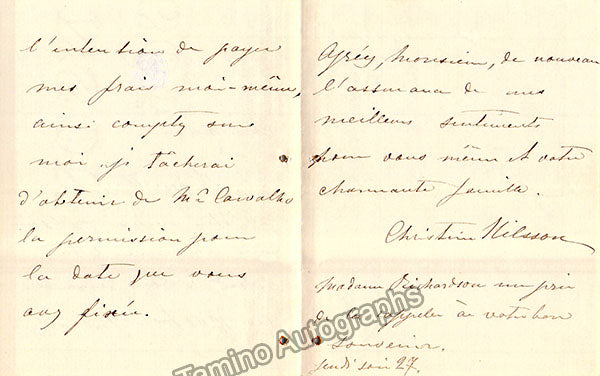 l'intention de payer
mes frais moi-même,
ainsi comptez sur
moi je tâcherai
d'obtenir de Mr Carvalho
la permission pour
la date que vous
avez fixée.
Agréez, Monsieur, de nouveau
l'assurance de mes
meilleurs sentiments
pour vous même et votre
charmante famille.
Christine Nilsson
Madame Richardson me prie
de la rappeler à votre bon
Souvenir.
Jeudi soir 27.
Tamino Autographs